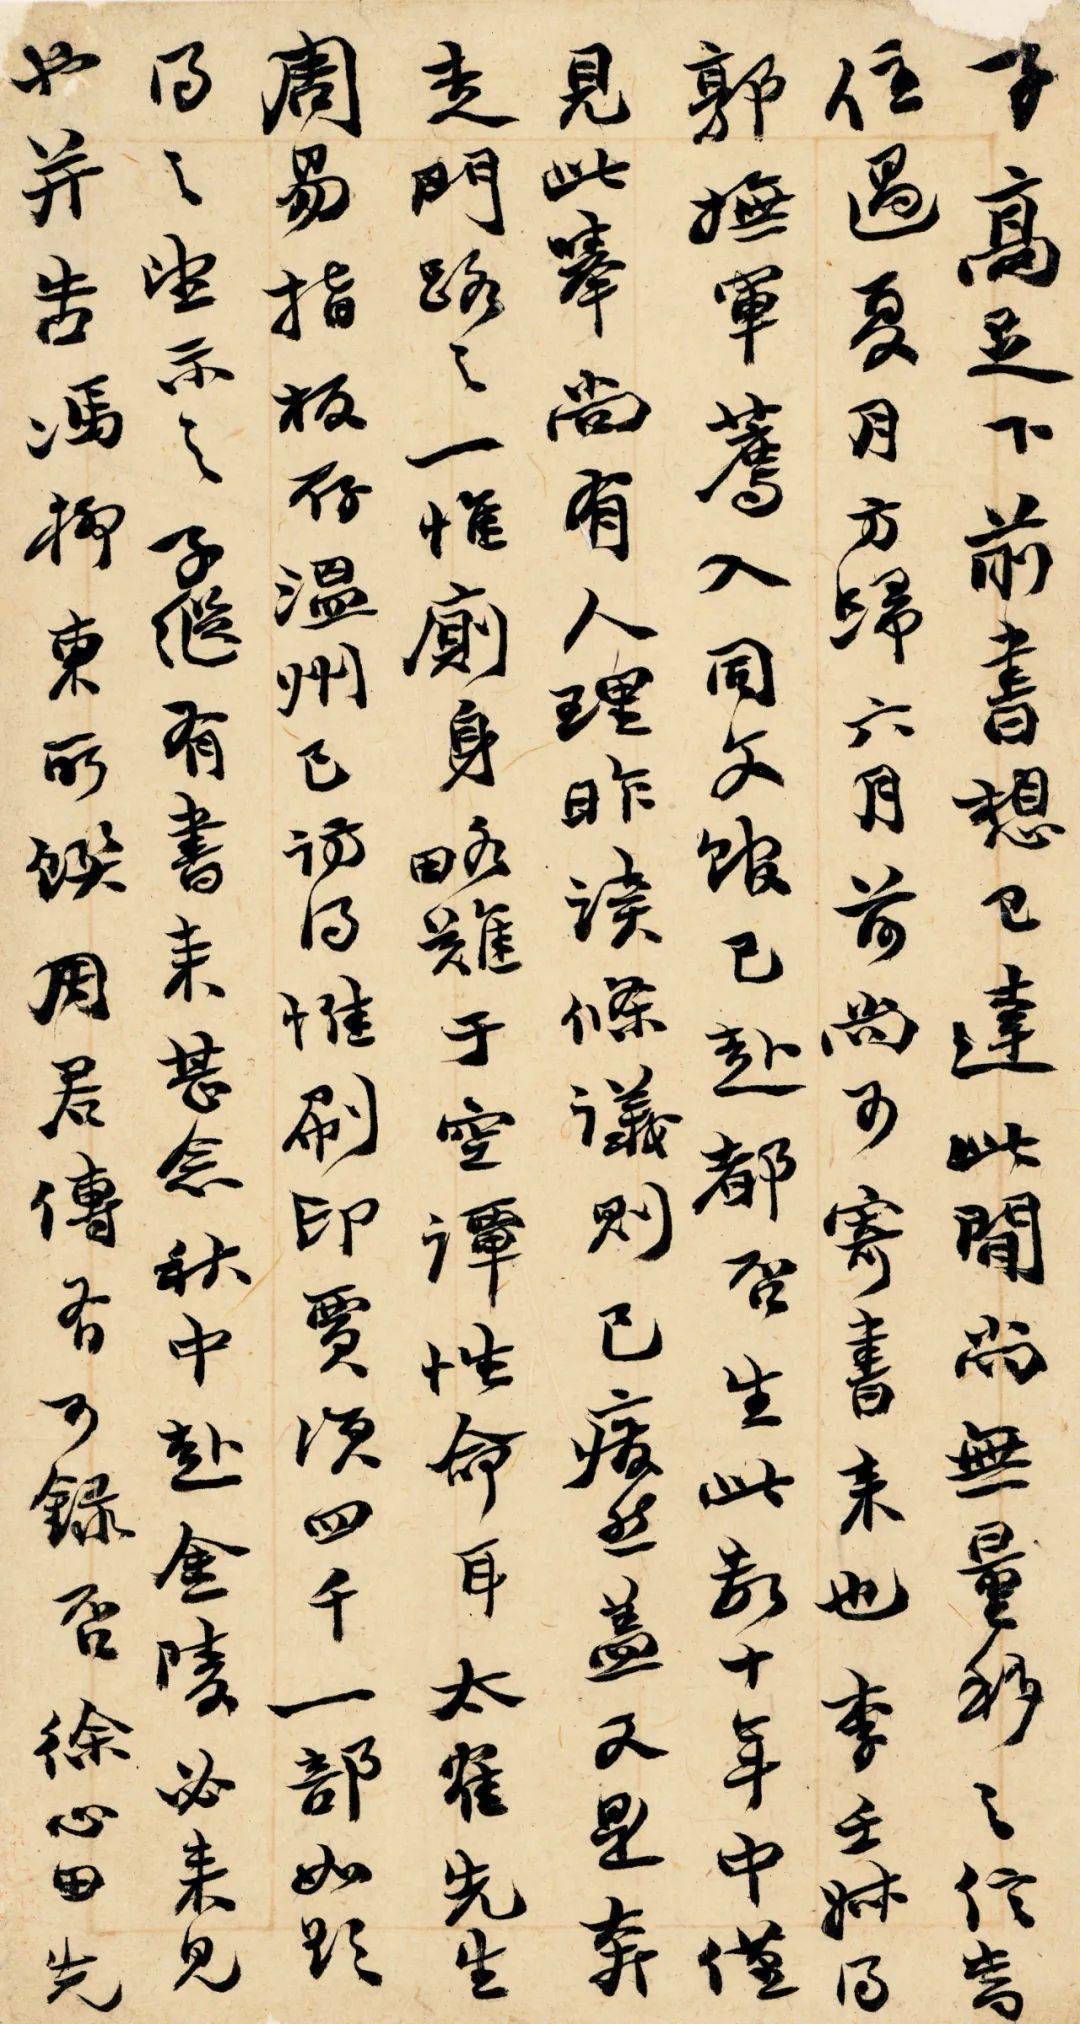 子高足下前書想已達此間尚無量移之信當
住過夏月方歸六月前尚可寄書来也李壬叔得
郭撫軍薦入同文館已赴都否生此數十年中僅
見此舉尚有人理昨讀條議則已廢然蓋又是奔
走門路之一惟廁身略難于空譚性命耳太雀先生
周易指板存温州已訪得惟刷印賈須四千一部如欲
得之望示之子繼有書来甚念秋中赴金陵必来見
也并告馮柳東所鍥周君傳者可録否徐心田先